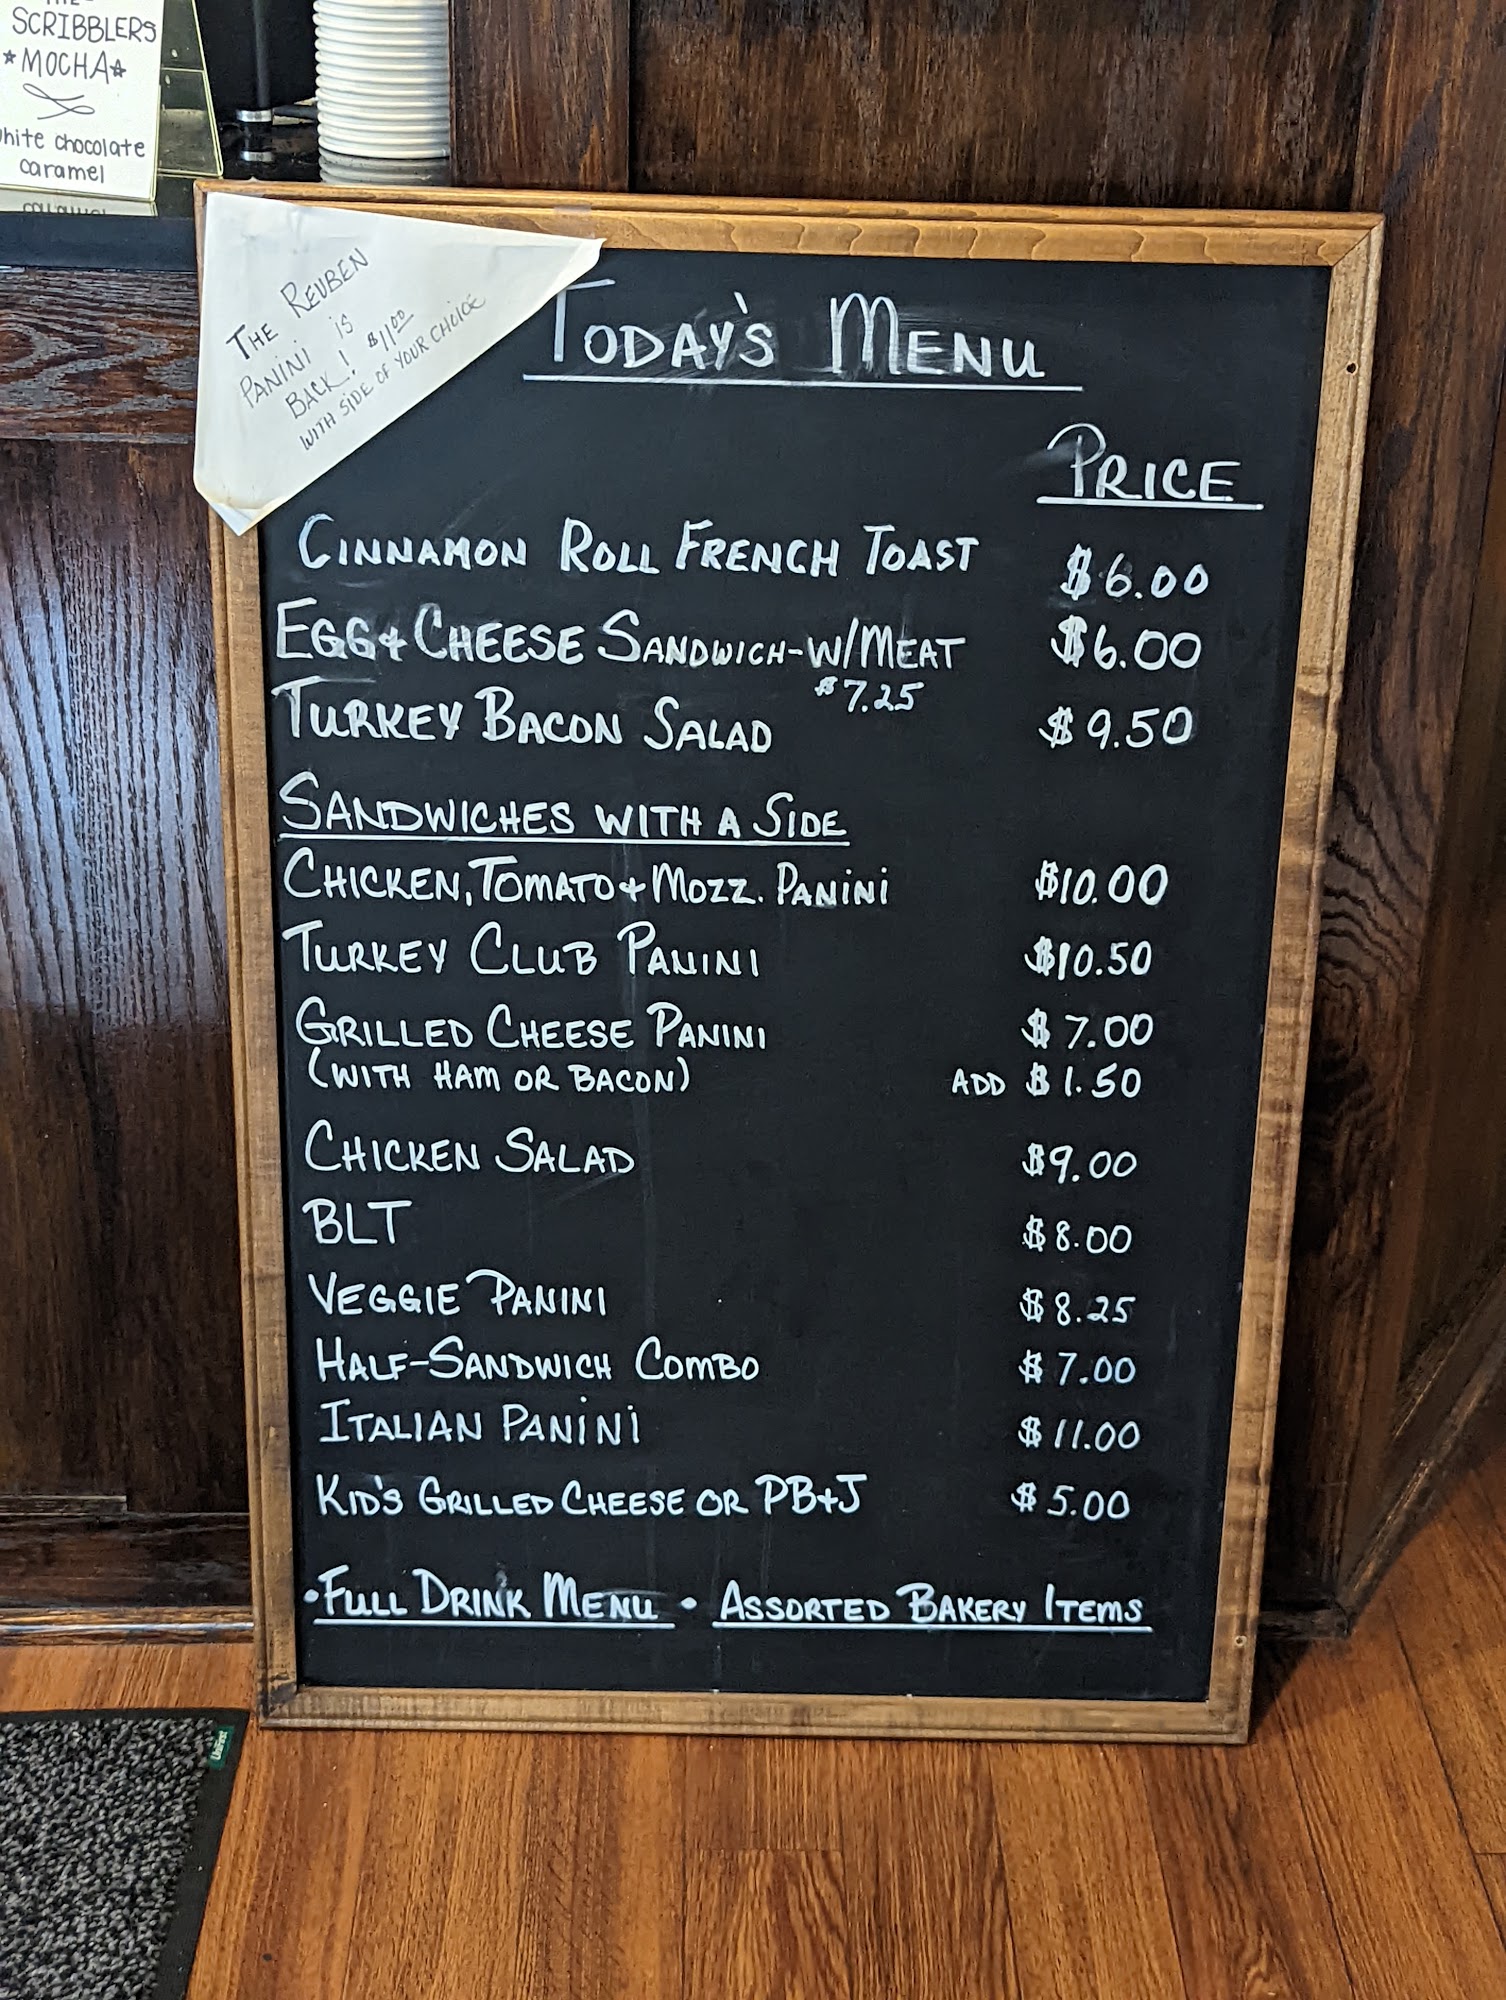 SCRIBBLERS
★MOCHA★
white chocolate
caramel
THE REUBEN
PANINI is
BACK! $11.00
WITH SIDE OF YOUR CHOICE
TODAY'S MENU
PRICE
CINNAMON ROLL FRENCH TOAST $6.00
EGG + CHEESE SANDWICH-W/MEAT $6.00
$7.25
TURKEY BACON SALAD $9.50
SANDWICHES WITH A SIDE
CHICKEN, TOMATO + MOZZ. PANINI $10.00
TURKEY CLUB PANINI $10.50
GRILLED CHEESE PANINI $7.00
(WITH HAM OR BACON) ADD $1.50
CHICKEN SALAD $9.00
BLT $8.00
VEGGIE PANINI $8.25
HALF-SANDWICH COMBO $7.00
ITALIAN PANINI $11.00
KID'S GRILLED CHEESE OR PB+J $5.00
•FULL DRINK MENU • ASSORTED BAKERY ITEMS
UniFirst